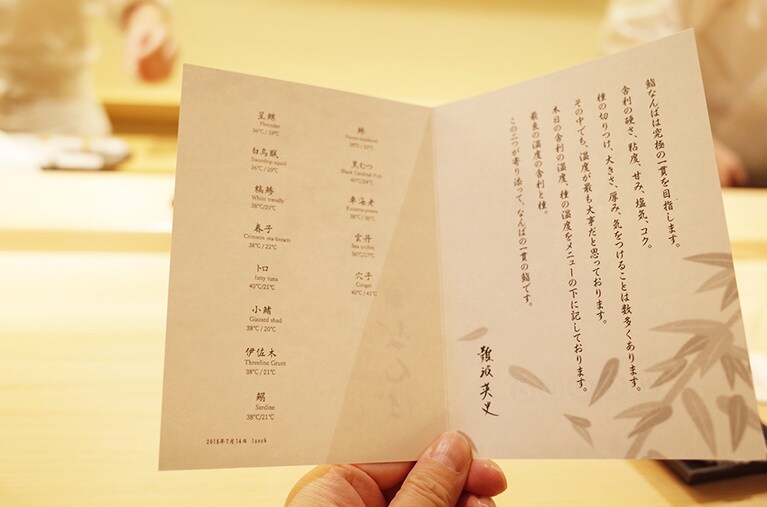 鮨なんばは究極の一貫を目指します。
舎利の硬さ、粘度、甘み、塩気、コク。
種の切りつけ、大きさ、厚み、気をつけることは数多くあります。
その中でも、温度が最も大事だと思っております。
本日の舎利の温度、種の温度をメニューの下に記しております。
最良の温度の舎利と種。
この二つが寄り添って、なんばの一貫の鮨です。
難波英史
36℃/19℃
白烏賊
Swordtip squid
36℃/20℃
縞鯵
White trevally
38℃/21℃
春子
Crimson sea-bream
38℃/22℃
トロ
fatty tuna
40℃/21℃
小鰭
Gizzard shad
38℃/20℃
伊佐木
Threeline Grunt
38℃/21℃
Sardine
38℃/21℃
2018年7月16日 lunch
黒むつ
40℃/24℃
車海老
Kuruma prawn
雲丹
Sea urchin
穴子
Conger